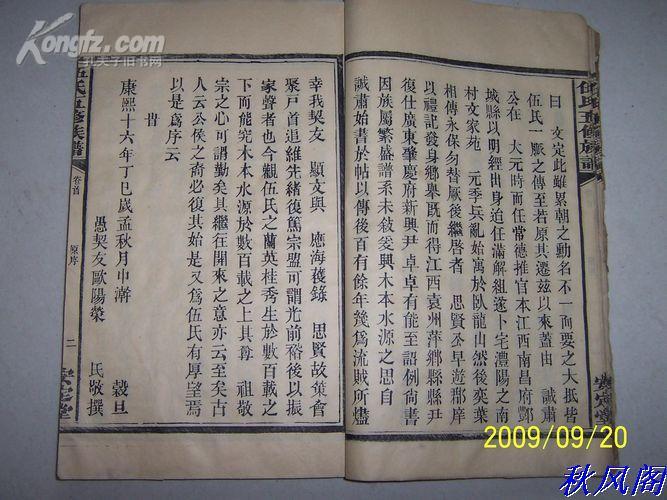 Kongfz.com
孔夫子旧书网
伍氏五修族譜
曰　文定此雖累朝之動名不一而要之大抵皆
伍氏一脈之傳至若原其遷茲以來蓋由　誠肅
公在　大元時而任常德推官本江西南昌府酆
城縣以明經出身廹任滿解組遂卜宅澧陽之南
村文家苑　元季兵亂始寓於臥龍山然後奕葉
相傳永保勿替厥後繼啓者　思賢丞早遊鄰庠
以禮記發身鄉舉既而得江西袁州萍鄉縣縣尹
復仕廣東肇慶府新興尹　卓卓有能至語例尚書
因族屬繁盛譜系未敘爰興木本水源之思自
誠肅始書於帖以傳後百有餘年幾爲流賊所燼
安定堂
幸我契友　顯文與　應海穫錄　思賢故策會
聚戸首追維先緒復篤宗盟可謂光前裕後以振
家聲者也今觀伍氏之蘭英桂秀生於數百載之
下而能究木本水源於數百載之上其尊　祖敬
宗之心可謂勤矣其繼往開來之意亦云至矣古
人云公侯之裔必復其始是又爲伍氏有厚望焉
以是爲序云
旹
康熙十六年丁巳歲孟秋月中澣　穀旦
愚契友歐陽榮　民敬撰
伍氏五修族譜
卷首
原序
二
安定堂
2009/09/20
秋风阁